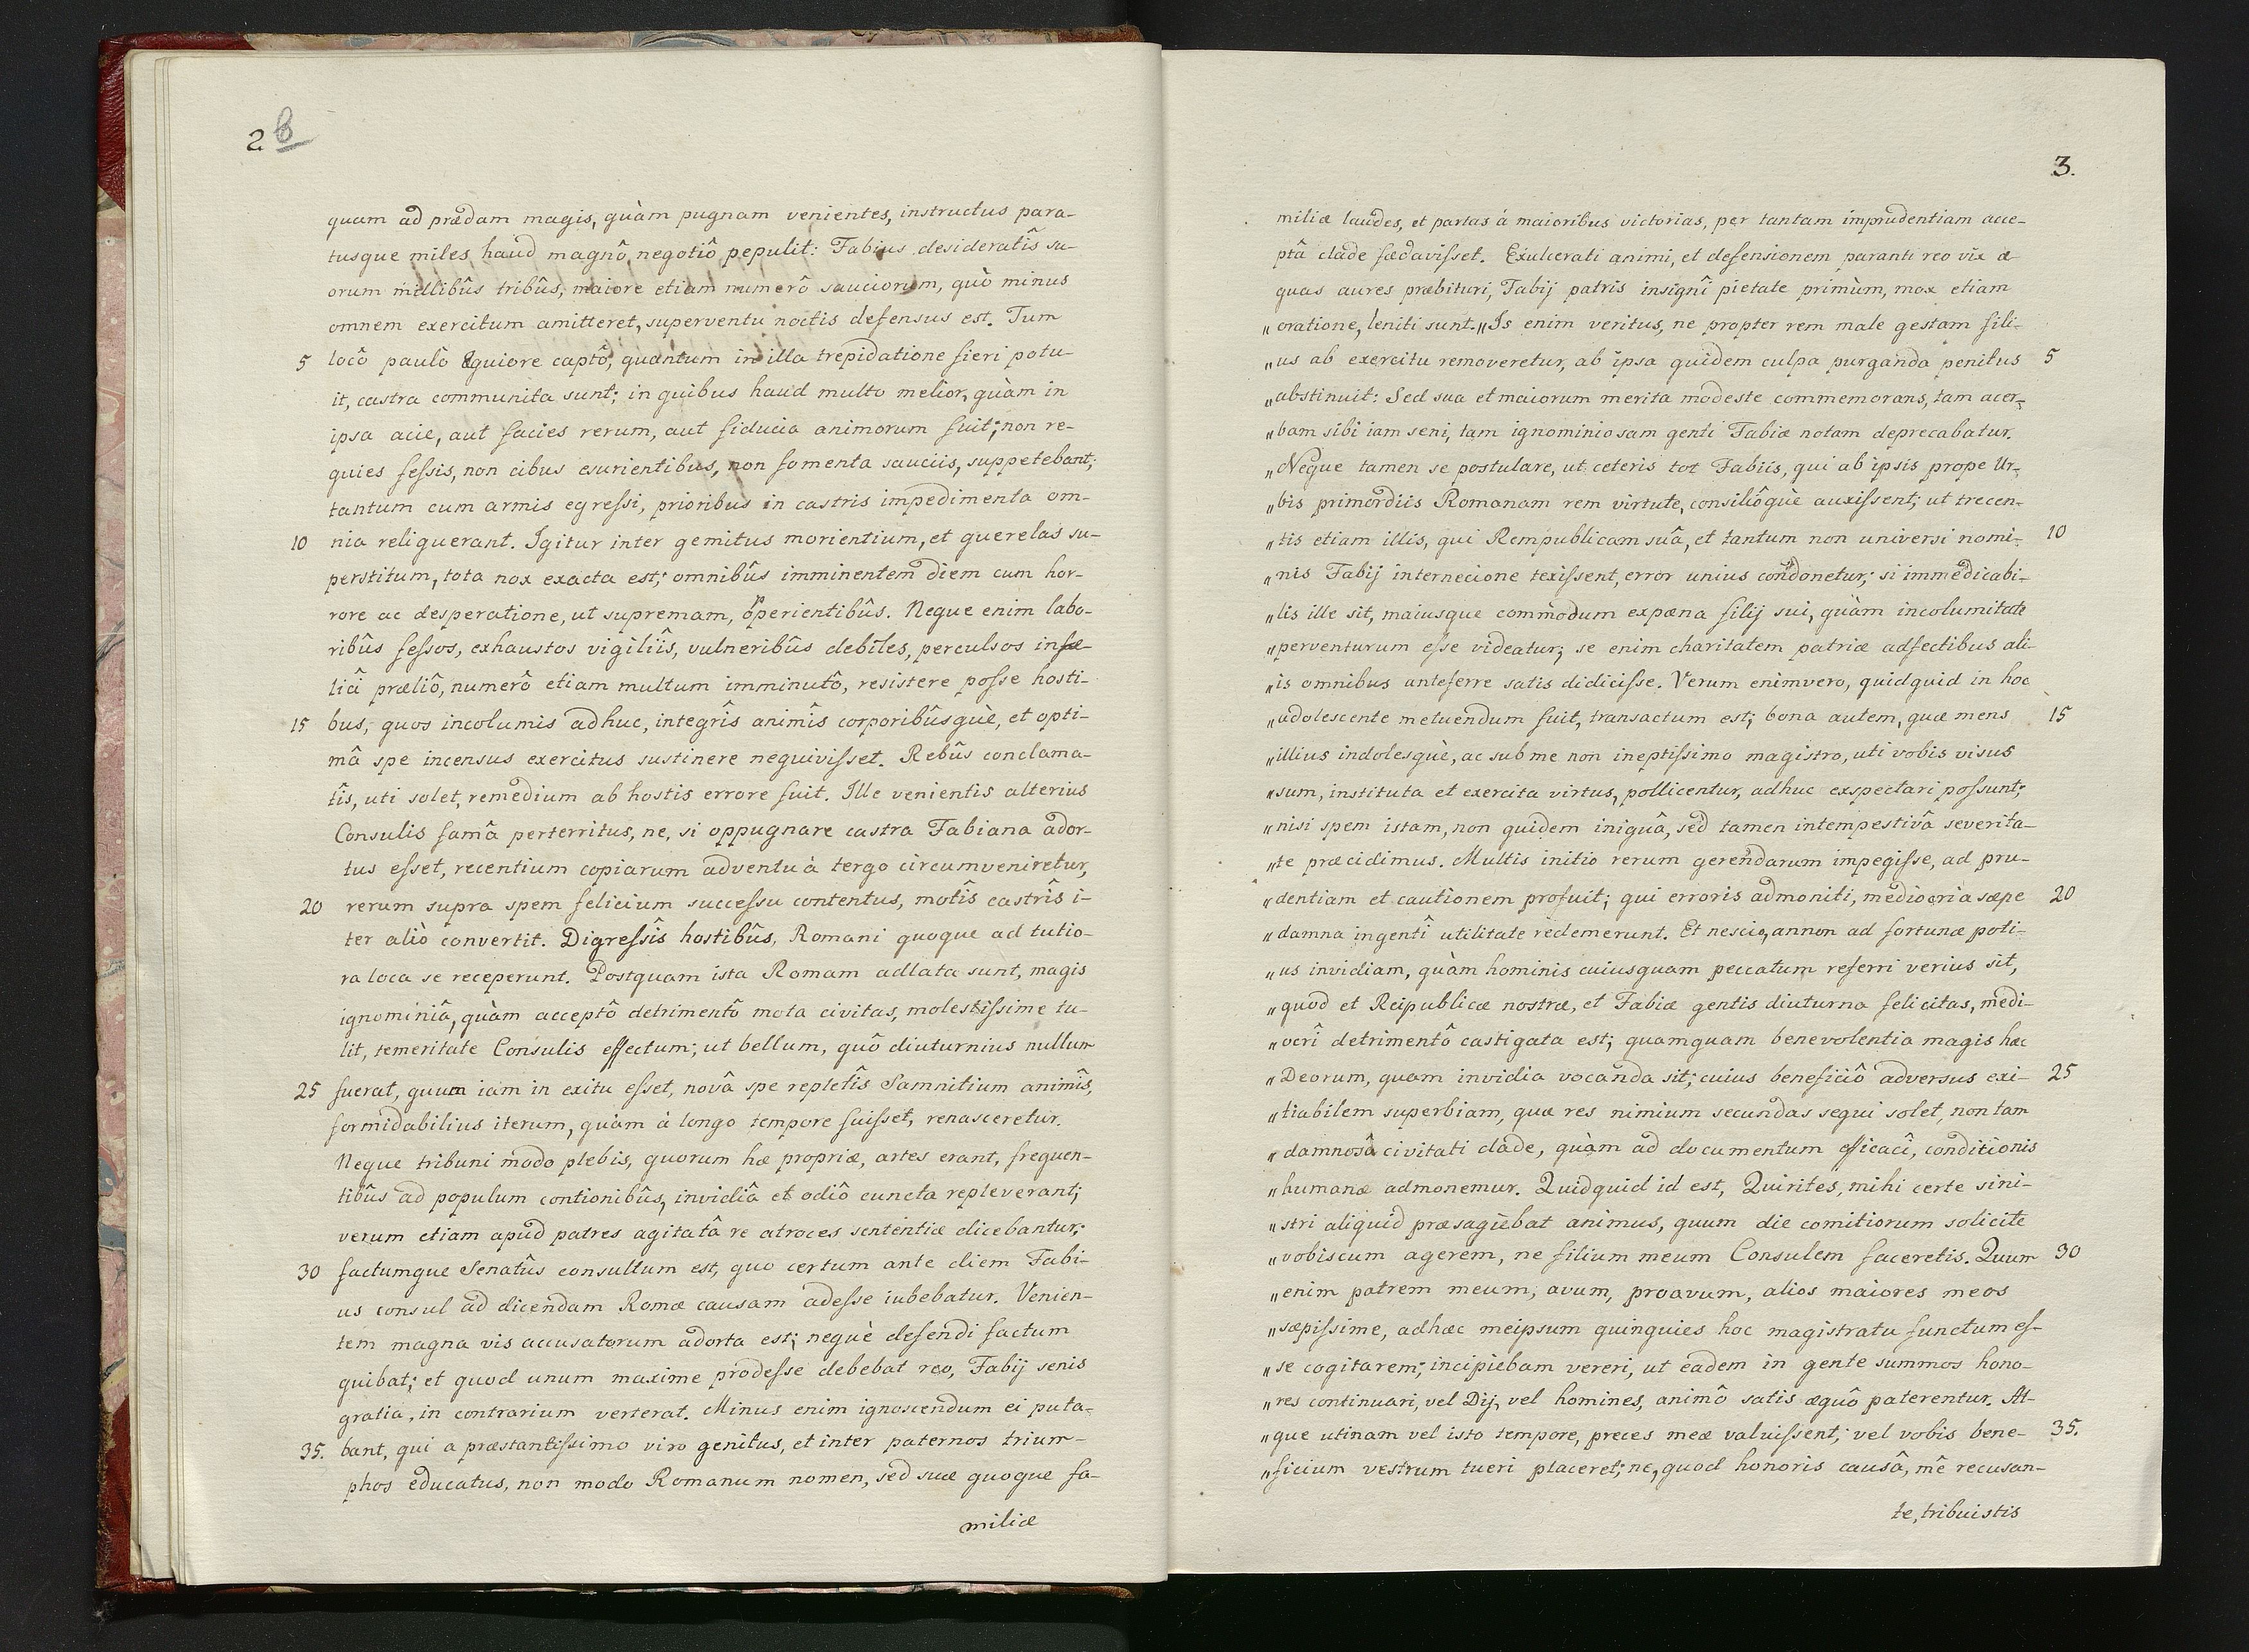 2 B
quam ad prædam magis, quàm pugnam venientes, instructus para-
tusque miles haud magnô negotiô pepulit: Fabius desideratîs su-
orum millibûs tribûs, maiore etiam numerô sauciorum, quò minus
omnem exercitum amitteret, superventu noctis defensus est. Tum
5 locô paulô æquiore captô, quantum in illa trepidatione fieri potu-
it, castra communita sunt; in quibus haud multo melior, quàm in
ipsa acie, aut facies rerum, aut fiducia animorum fuit; non re-
quies fessis, non cibus esurientibus, non fomenta sauciis, suppetebant;
tantum cum armis egressi, prioribus in castris impedimenta om-
10 nia reliquerant. Igitur inter gemitus morientium, et querelas su-
perstitum, tota nox exacta est; omnibûs imminentem diem cum hor-
rore ac desperatione, ut supremam, opperientibûs. Neque enim labo-
ribûs fessos, exhaustos vigiliîs, vulneribûs debiles, perculsos infæ-
lici prœliô, numerô etiam multum imminutô, resistere posse hosti-
15 bus, quos incolumis adhuc, integrîs animîs corporibûsquè, et opti-
mâ spe incensus exercitus sustinere nequivisset. Rebûs conclama-
tîs, uti solet, remedium ab hostis errore fuit. Ille venientis alterius
Consulis famâ perterritus, ne, si oppugnare castra Fabiana ador-
tus esset, recentium copiarum adventu à tergo circumveniretur,
20 rerum supra spem felicium successu contentus, motîs castrîs i-
ter aliò convertit. Digressîs hostibûs, Romani quoque ad tutio-
ra loca se receperunt. Postquam ista Romam adlata sunt, magis
ignominiâ, quàm acceptô detrimentô mota civitas, molestissime tu-
lit, temeritate Consulis effectum; ut bellum, quô diuturnius nullum
25 fuerat, quum iam in exitu esset, novâ spe repletîs Samnitium animîs,
formidabilius iterum, quàm à longo tempore fuisset, renasceretur.
Neque tribuni modo plebis, quorum hæ propriæ, artes erant, frequen-
tibûs ad populum contionibûs, invidiâ et odiô cuncta repleverant;
verum etiam apud patres agitatâ re atroces sententiæ dicebantur;
30 factumque Senatûs consultum est, quo certum ante diem Fabi-
us consul ad dicendam Romæ causam adesse iubebatur. Venien-
tem magna vis accusatorum adorta est; nequè defendi factum
quibat; et quod unum maxime prodesse debebat reo, Fabij senis
gratia, in contrarium verterat. Minus enim ignoscendum ei puta-
35. bant, qui a præstantissimo viro genitus, et inter paternos trium-
phos educatus, non modo Romanum nomen, sed suæ quoque fa-
miliæ
3.
miliæ laudes, et partas á maioribus victorias, per tantam imprudentiam acce-
ptâ clade fœdavisset. Exulcerati animi, et defensionem paranti reo vix æ
quas aures præbituri, Fabij patris insignî pietate primùm, mox etiam
„ oratione, leniti sunt. „Is enim veritus, ne propter rem male gestam fili-
„us ab exercitu removeretur, ab ipsa quidem culpa purganda penitus 5
„abstinuit: Sed sua et maiorum merita modeste commemorans, tam acer-
„bam sibi iam seni, tam ignominiosam genti Fabiæ notam deprecabatur.
„Neque tamen se postulare, ut ceteris tot Fabiis, qui ab ipsis prope Ur-
„bis primordiis Romanam rem virtute, consiliôquè auxissent; ut trecen-
„tis etiam illis, qui Rempublicam suâ, et tantum non universi nomi- 10
„nis Fabij internecione texissent, error unius condonetur; si immedicabi-
„lis ille sit, maiusque commodum expœna filij sui, quàm incolumitate
„perventurum esse videatur; se enim charitatem patriæ adfectibus ali-
„is omnibus anteferre satis didicisse. Verum enimvero, quidquid in hoc
„adolescente metuendum fuit, transactum est; bona autem, quæ mens 15
„illius indolesquè, ac sub me non ineptissimo magistro, uti vobis visus
„sum, instituta et exercita virtus, pollicentur, adhuc exspectari possunt;
„nisi spem istam, non quidem iniquâ, sed tamen intempestivâ severita-
„te præcidimus. Multis initio rerum gerendarum impegisse, ad pru-
„dentiam et cautionem profuit; qui erroris admoniti, mediocria sæpe 20
„damna ingentî utilitate redemerunt. Et nescio, annon ad fortunæ poti-
„us invidiam, quàm hominis cuiusquam peccatum referri verius sit,
„quod et Reipublicæ nostræ, et Fabiæ gentis diuturna felicitas, medi-
„ocrî detrimentô castigata est; quamquam benevolentia magis hæc
„Deorum, quam invidia vocanda sit; cuius beneficiô adversus exi- 25
„tiabilem superbiam, quæ res nimium secundas sequi solet, non tam
„damnosâ civitati clade, quàm ad documentum efficacî, conditionis
„humanæ admonemur. Quidquid id est, Quirites, mihi certe sini-
„stri aliquid præsagiebat animus, quum die comitiorum solicite
„vobiscum agerem, ne filium meum Consulem faceretis. Quum 30
„enim patrem meum, avum, proavum, alios maiores meos
„sæpissime, adhæc meipsum quinquies hoc magistratu functum es-
„se cogitarem; incipiebam vereri, ut eadem in gente summos hono-
„res continuari, vel Dij, vel homines, animô satis æquô paterentur. At-
„que utinam vel isto tempore, preces meæ valuissent; vel vobis bene- 35.
„ficium vestrum tueri placeret; ne, quod honoris causâ, mê recusan-
te, tribuistis